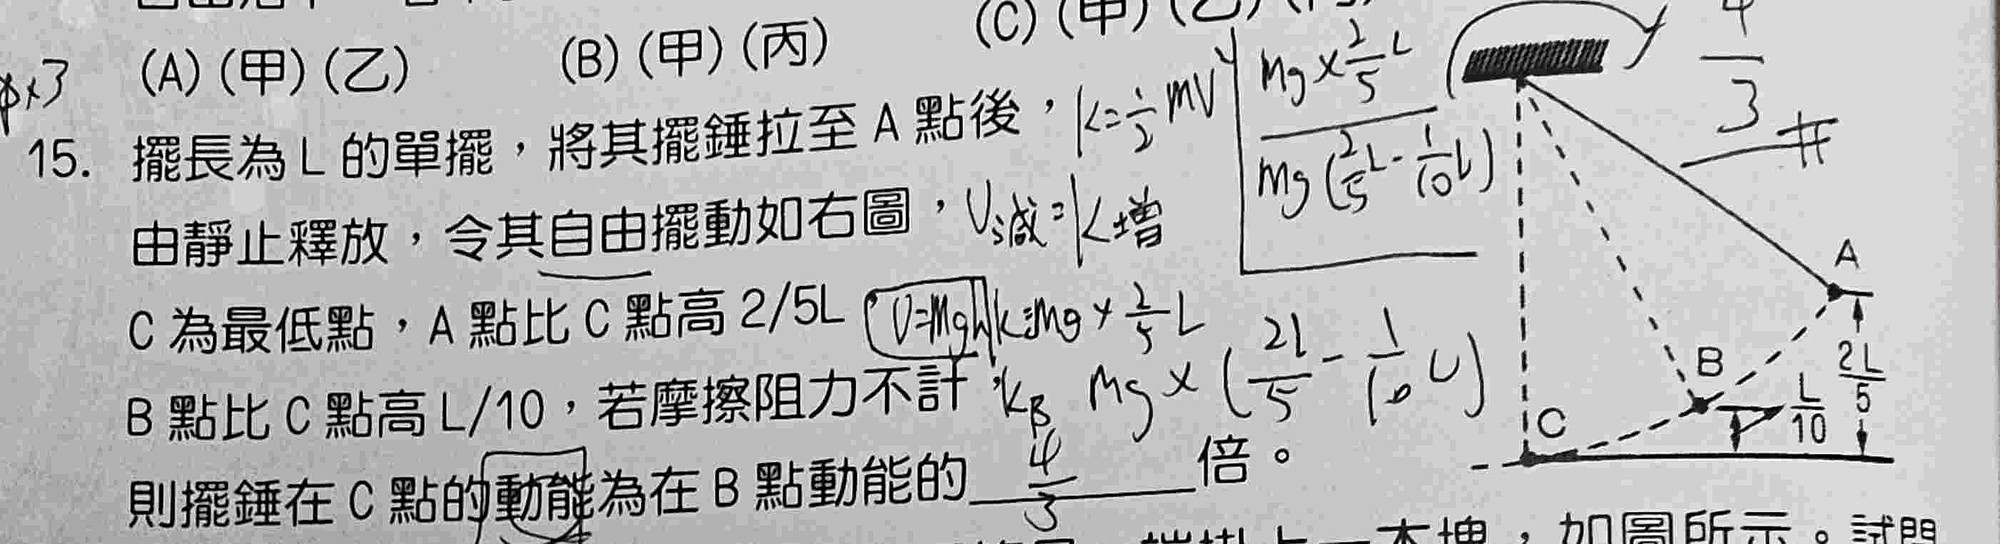 (A)(甲)(乙) (B)(甲)(丙) (C)(甲)(乙)
×3
15. 擺長為 L 的單擺，將其擺錘拉至 A 點後，
由靜止釋放，令其自由擺動如右圖，
C 為最低點，A 點比 C 點高 2/5L
B 點比 C 點高 L/10，若摩擦阻力不計，
則擺錘在 C 點的動能為在 B 點動能的 4/3 倍。
K=1/2 mV
U減=K增
U=Mgh K=Mg×2/5 L
K_B Mg×(2L/5-1/10 L)
Mg×2/5 L
Mg(2/5 L-1/10 L)
4/3 #
A
B
C
2L/5
L/10
一木塊，如圖所示。試問